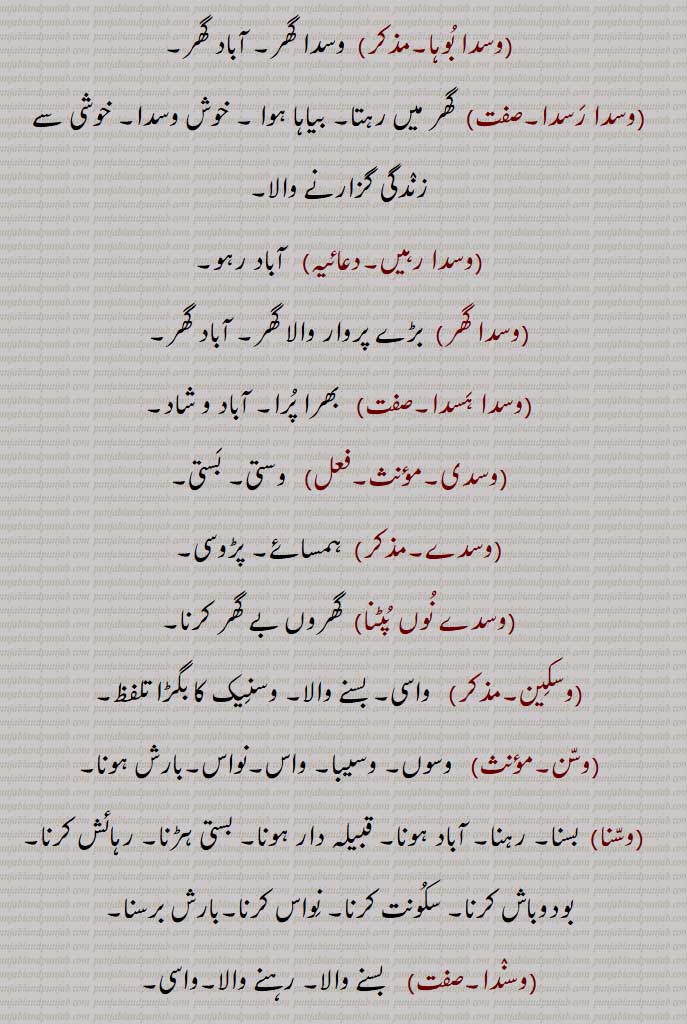 (وسدا بُوہا۔مذکر) وسدا گھر۔ آباد گھر۔
(وسدا رَسدا۔صفت) گھر میں رہتا۔ بیاہا ہوا ۔ خوش وسدا۔ خوشی سے
زنْدگی گزارنے والا۔
(وسدا رہیں۔دعائیہ) آباد رہو۔
(وسدا گھر) بڑے پروار والا گھر۔ آباد گھر۔
(وسدا ہَسدا۔صفت) بھرا پُرا۔ آباد و شاد۔
(وسدی۔مؤنث۔فعل) وستی۔ بَستی۔
(وسدے۔مذکر) ہمسائے۔ پڑوسی۔
(وسدے نُوں پُٹنا) گھروں بے گھر کرنا۔
(وسکِین۔مذکر) واسی۔ بسنے والا۔ وسنِیک کا بگڑا تلفظ۔
(وسّن۔مؤنث) وسوں۔ وسیبا۔ واس۔نواس۔بارش ہونا۔
(وسّنا) بسنا۔ رہنا۔ آباد ہونا۔ قبیلہ دار ہونا۔ بستی ہڑنا۔ رہائش کرنا۔
بودوباش کرنا۔ سکُونت کرنا۔ نِواس کرنا۔بارش برسنا۔
(وسنْدا۔صفت) بسنے والا۔ رہنے والا۔واسی۔